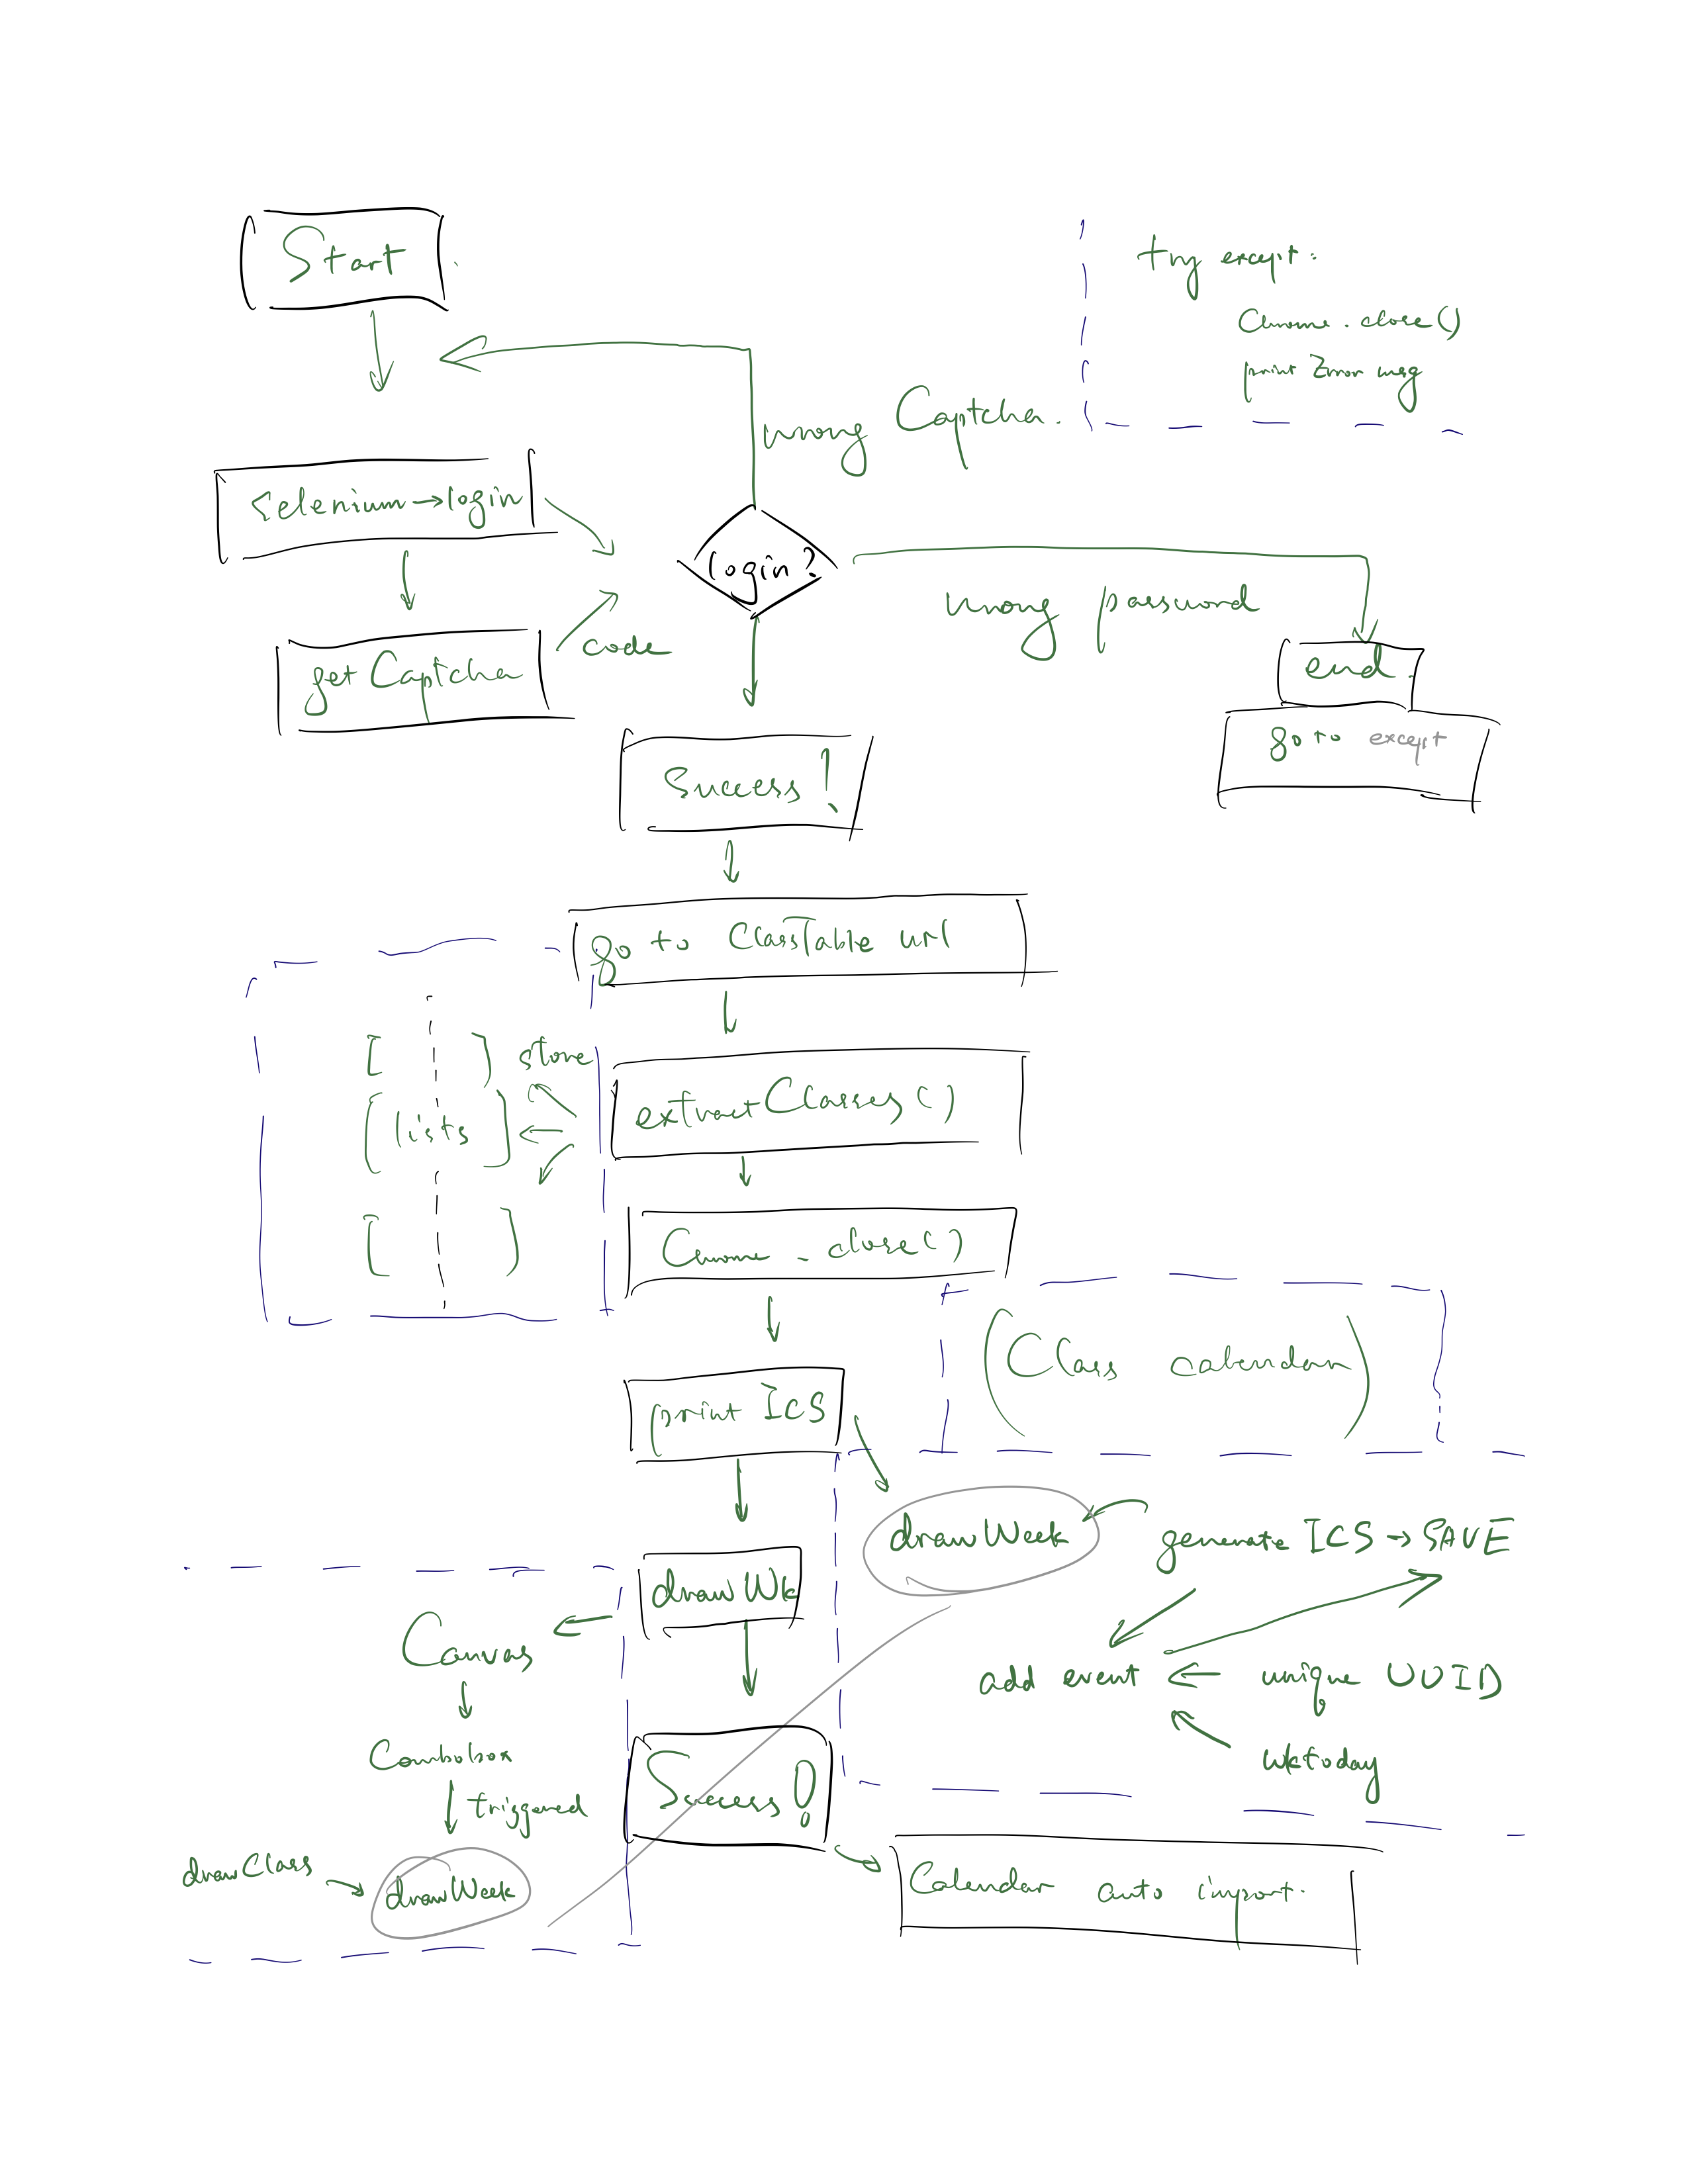 Start
try except:
Chrome.close()
print Error msg
wrong Captcha.
Selenium→login
login?
wrong password
code
get Captcha
end.
go to except
Success!
go to ClassTable url
store
extractClasses()
[lists]
Chrome.close()
(Class calendar)
print ICS
drawWeek
generate ICS → SAVE
drawWk
Canvas
add event ← unique UUID
Combobox
wktoday
triggered
Success!
drawClass
drawWeek
Calendar auto import.